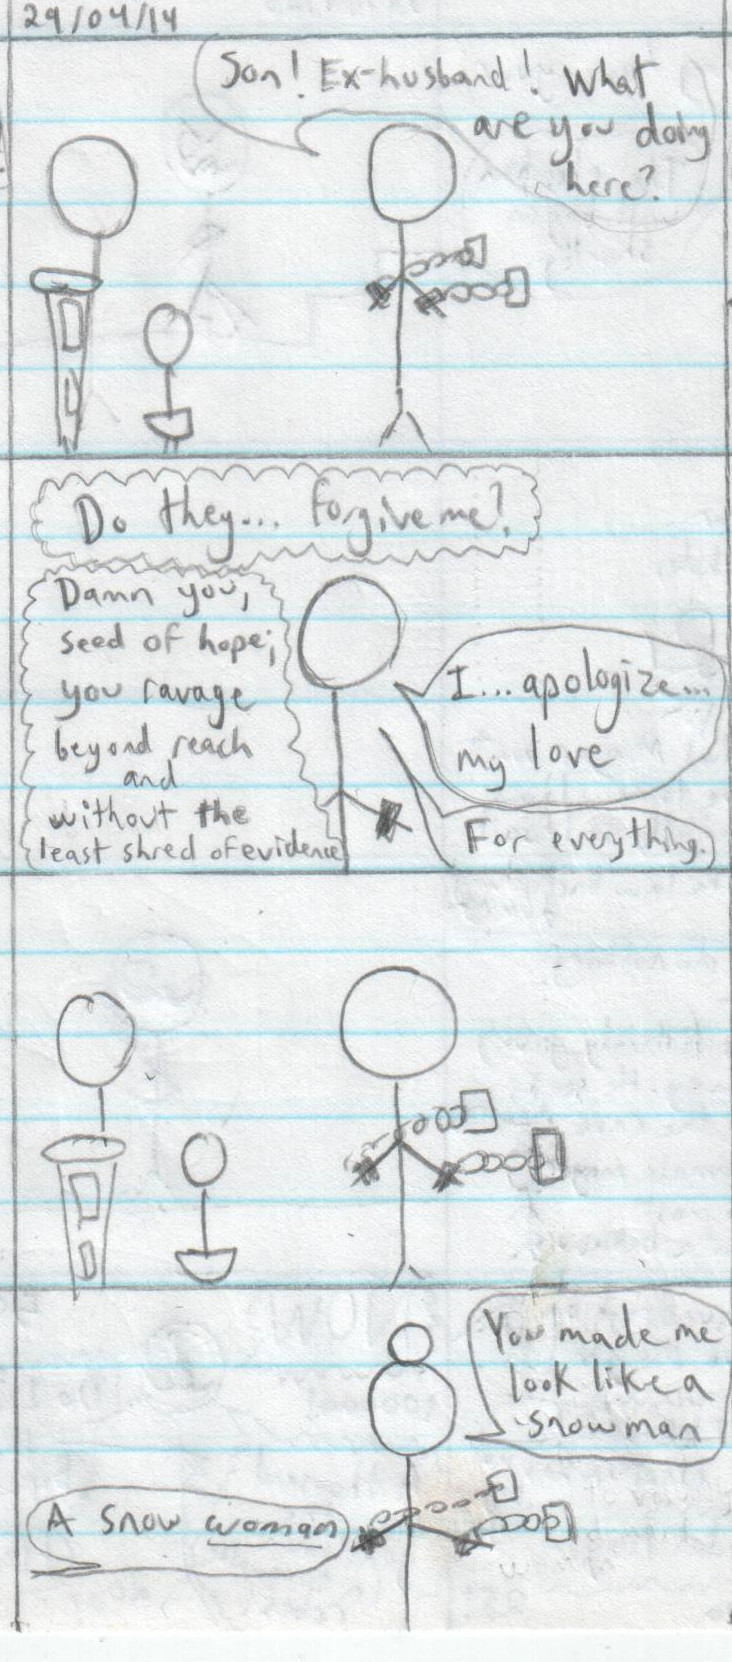 29/04/14
Son! Ex-husband! What
are you doing
here?
Do they... forgive me?
Damn you,
seed of hope;
you ravage
beyond reach
and
without the
least shred of evidence
I... apologize...
my love
For everything.
You made me
look like a
snowman
A snow woman